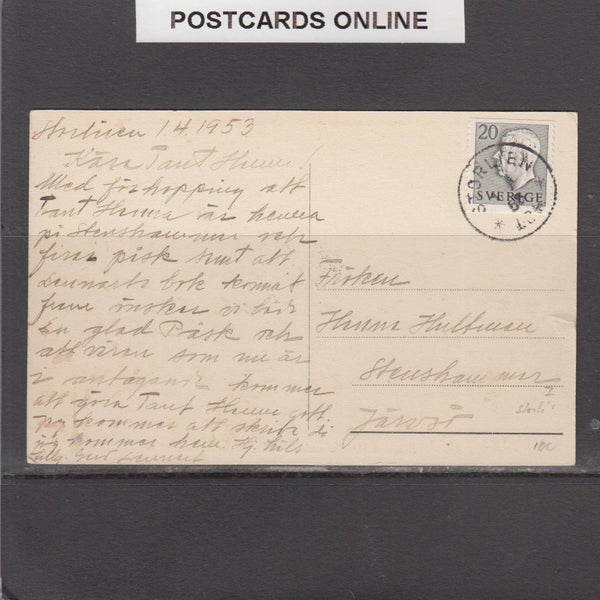 POSTCARDS ONLINE
Storlien 1.4.1953
20
SVERIGE
STORLIEN
Kära Tant Hanna!
Med förhopping att
Tant Hanna är hemma
på Stenshammar och
firar påsk samt att
Lennarts bok kommit
fram önskar vi båda
en glad Påsk och
att våren som nu är
i antågande kommer
att göra Tant Hanna gott.
Jag kommer att skriva då
jag kommer hem. Hj. häls
Lennart
Fröken
Hanna Hultman
Stenshammar
Järvsö